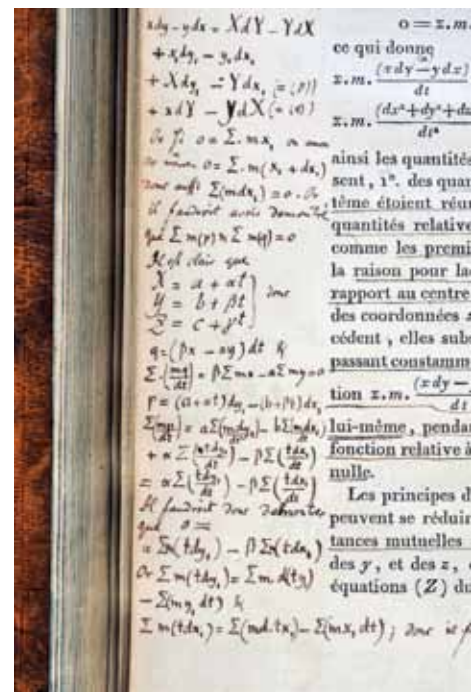 xdy - ydx = XdY - YdX
+ x,dy, - y,dx,
+ Xdy, - Ydx, (= (p))
+ x,dY - y,dX (= (q))
Or si 0 = Σ. mx, on aura
0 = Σ. m(x, + dx,)
donc aussi Σ(mdx,) = 0. Or
il faudroit avoir démontré
que Σ m(p) + Σ m(q) = 0
Il est clair que
X = a + αt
Y = b + βt } donc
Z = c + γt
q = (βx - αy) dt &
Σ. (mq/dt) = βΣmx - αΣmy = 0
p = (a+αt)dy, - (b+βt)dx,
Σ(mp/dt) = aΣ(mdy,/dt) - bΣ(mdx,/dt)
+ αΣ(mtdy,/dt) - βΣ(tdx,/dt)
= αΣ(tdy,/dt) - βΣ(tdx,/dt)
Il faudroit donc démontrer
que 0 =
= Σα(tdy,) - βΣα(tdx,)
Or Σ m(tdy,) = Σ m. d(ty)
- Σ(my, dt) &
Σ m(tdx,) = Σ(md. tx,) - Σ(mx, dt); donc il f
0 = Σ.m.
ce qui donne
Σ.m. (xdy - ydx)/dt
Σ.m. (dx²+dy²+dz/dt²
ainsi les quantités
sent, 1°. des quan
tême étoient réun
quantités relative
comme les premi
la raison pour la
rapport au centre
des coordonnées
cèdent, elles subs
passant constamm
tion Σ.m. (xdy -/dt
lui-même, penda
fonction relative à
nulle.
Les principes d
peuvent se réduir
tances mutuelles
des y, et des z,
équations (Z) du